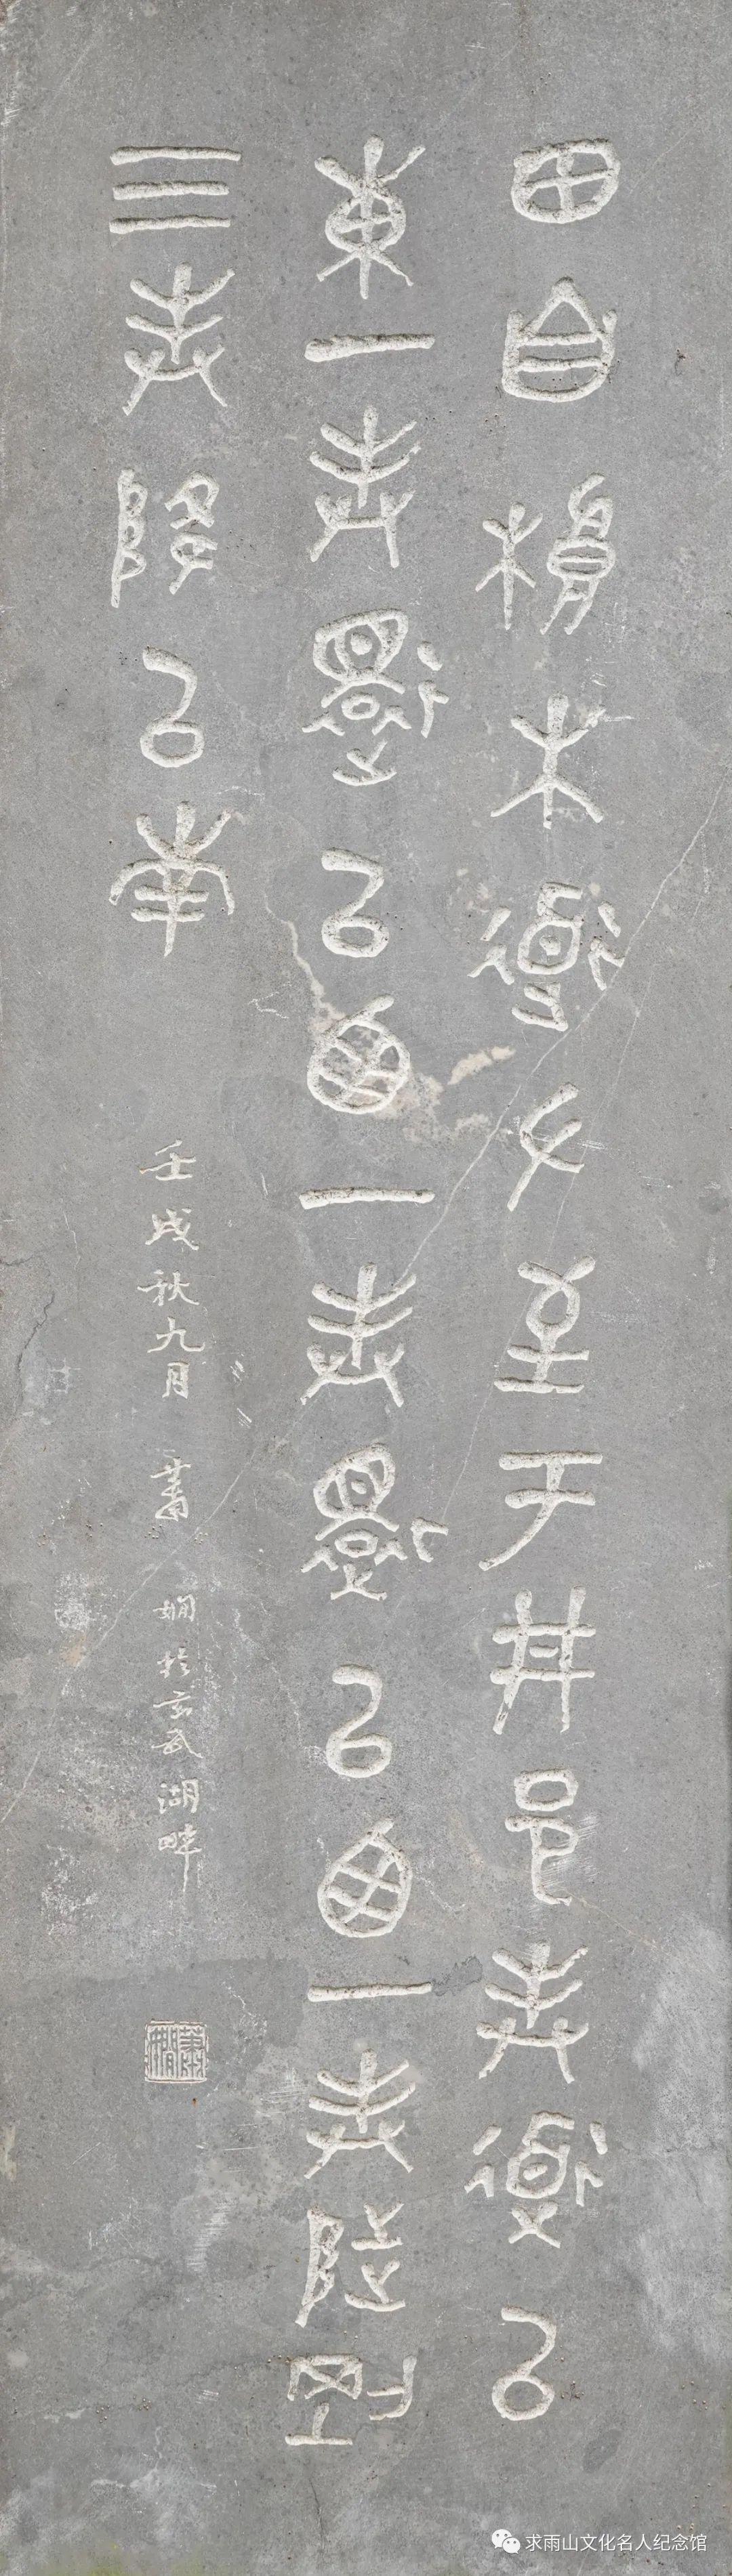 田自桹木道左至于井邑封道以
東一封還以西一封還以西一封陟剛
三封降以南
壬戌秋九月 蕭嫻於玄武湖畔
蕭嫻
求雨山文化名人纪念馆